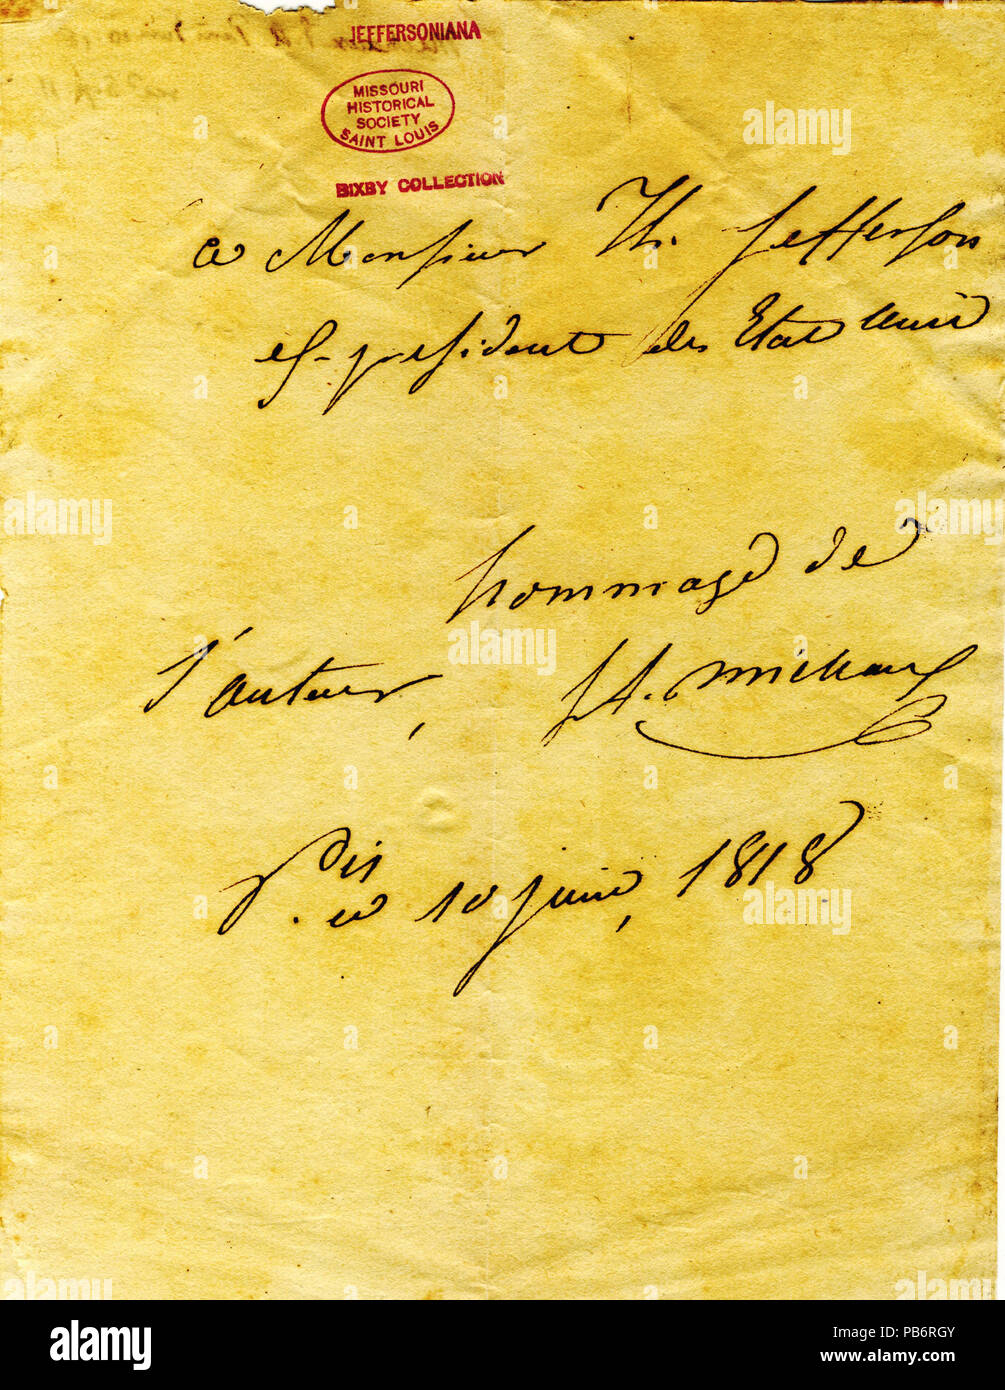 JEFFERSONIANA
MISSOURI
HISTORICAL
SOCIETY
SAINT LOUIS
BIXBY COLLECTION
a Monsieur Th. Jefferson
ex-président des Etats unis
hommage de
l'auteur, f A. michaux
P. ce 10 juin, 1818
alamy
Image ID: PB6RGY
www.alamy.com